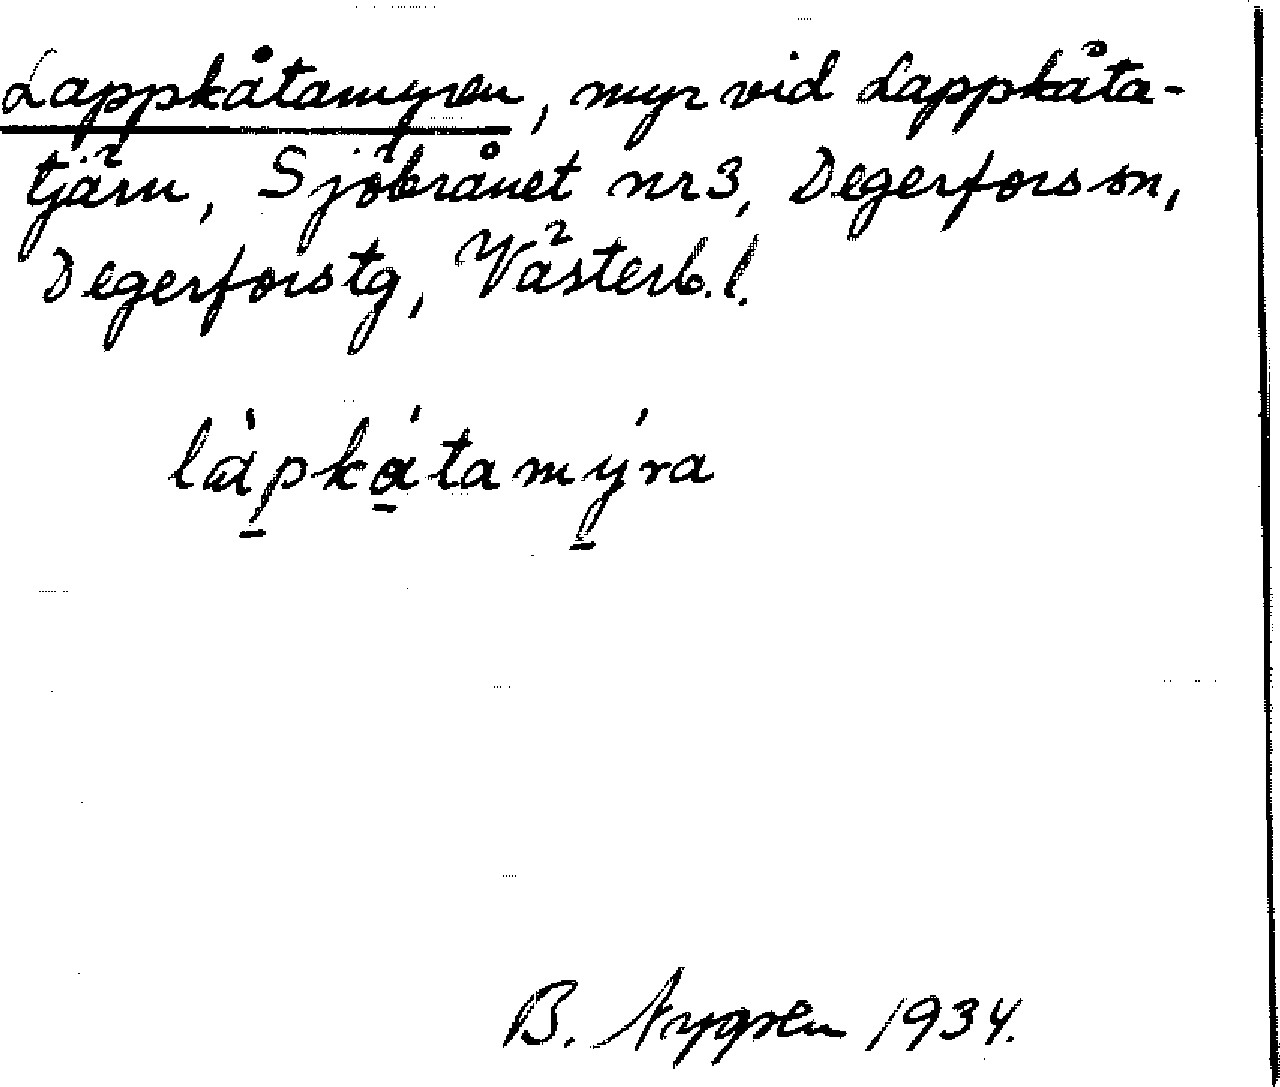 Lappkåtamyren, myr vid Lappkåta-
tjärn, Sjöbrånet nr 3, Degerfors sn,
Degerfors tg, Västerb. l.
làpkátamýra
B. Nygren 1934.